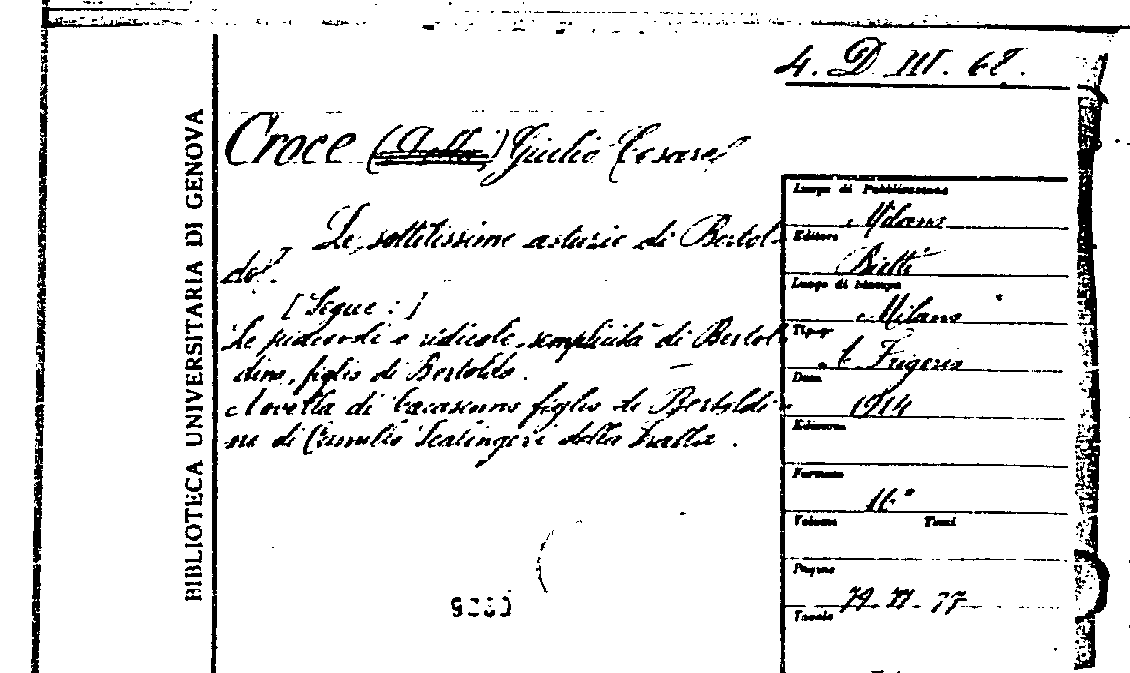 4. D. III. 68.
BIBLIOTECA UNIVERSITARIA DI GENOVA
Croce (Della) Giulio Cesare
Le sottilissime astuzie di Bertol-
do.
[Segue:]
Le piacevoli e ridicole semplicità di Bertol-
dino, figlio di Bertoldo.
Novella di Cacasenno figlio di Bertoldi-
no di Camillo Scalingeri della Fratta.
Luogo di Pubblicazione
Milano
Editore
Bietti
Luogo di stampa
Milano
Tipogr.
C. Frigerio
Data
1914
Edizione
Formato
16°
Volume Tomi
Pagine
79. 77. 77
Tavole